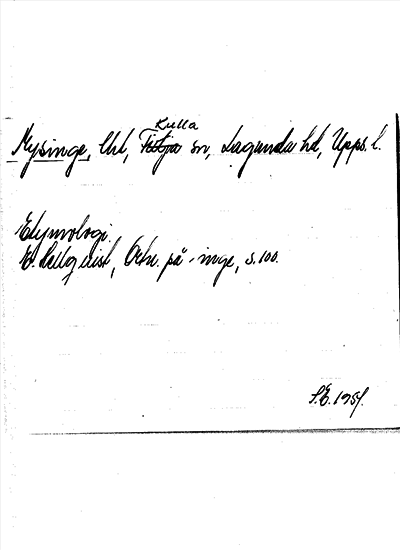 Kulla
Mysinge, Uhl, Tibbja sn, Lagunda hd, Upps. l.
Etymologi.
E. Hellquist, Ortn. på -inge, s. 100.
S.E. 1951.